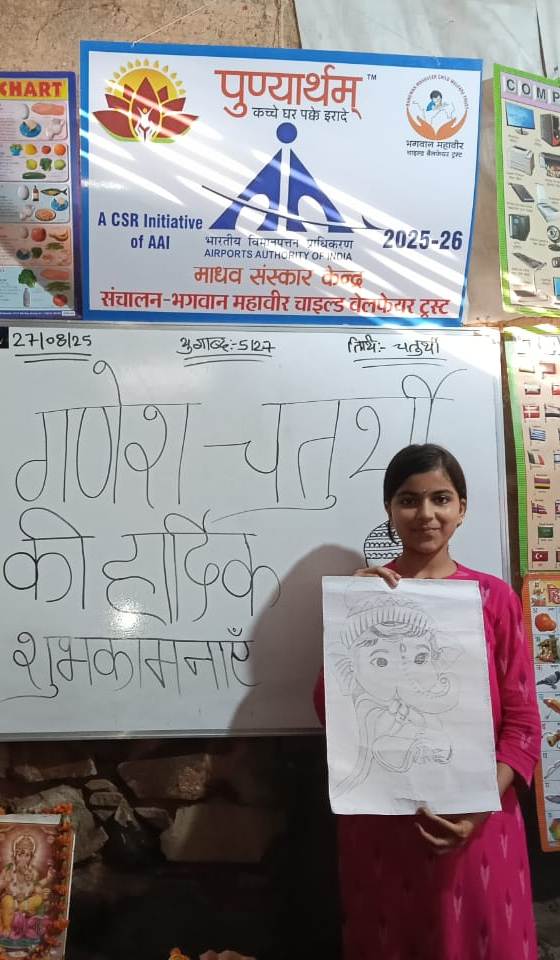 CHART
पुण्यार्थम् ™
कच्चे घर पक्के इरादे
भगवान महावीर
चाइल्ड वेलफेयर ट्रस्ट
A CSR Initiative
of AAI
भारतीय विमानपत्तन प्राधिकरण
AIRPORTS AUTHORITY OF INDIA
2025-26
माधव संस्कार केन्द्र
संचालन-भगवान महावीर चाइल्ड वेलफेयर ट्रस्ट
COMP
27/08/25 युगाब्द:-5127 तिथि:- चतुर्थी
गणेश - चतुर्थी
की हार्दिक
शुभकामनाएँ